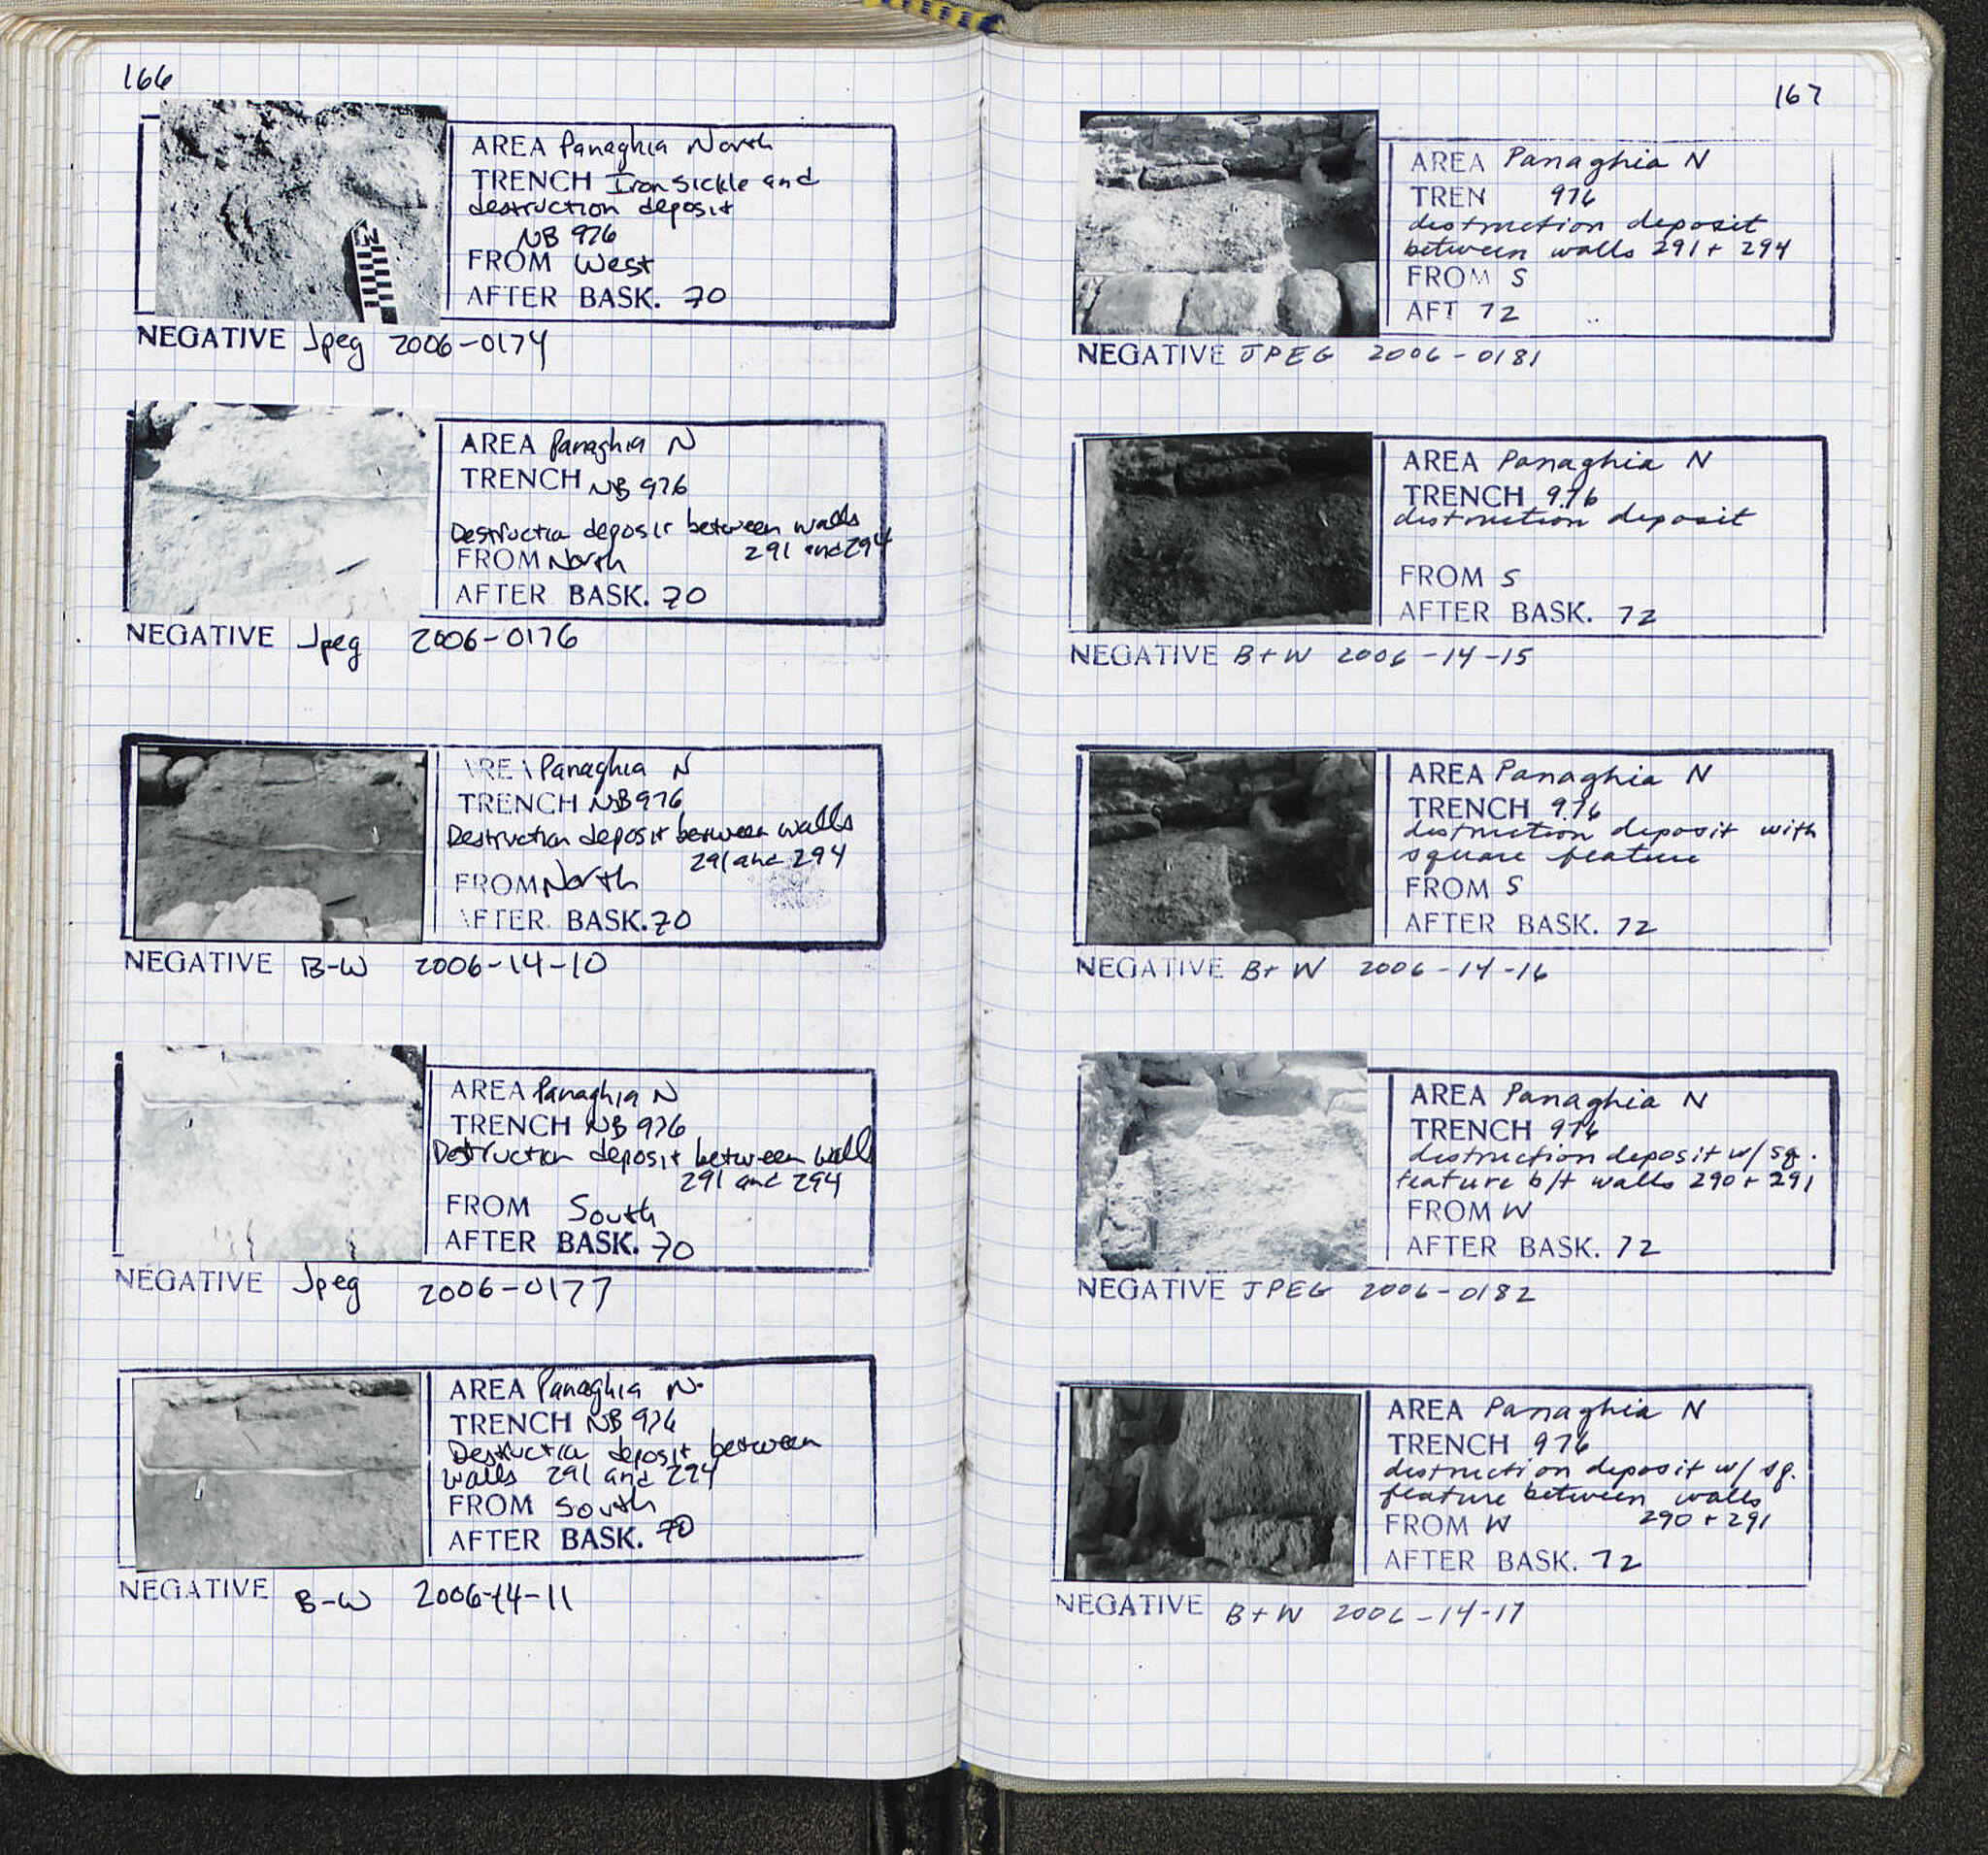 166
AREA Panaghia North
TRENCH Iron Sickle and
destruction deposit
NB 976
FROM West
AFTER BASK. 70
NEGATIVE Jpeg 2006-0174
AREA Panaghia N
TRENCH NB 976
Destruction deposit between walls
291 and 294
FROM North
AFTER BASK. 70
NEGATIVE Jpeg 2006-0176
AREA Panaghia N
TRENCH NB 976
Destruction deposit between walls
291 and 294
FROM North
AFTER BASK. 70
NEGATIVE B-W 2006-14-10
AREA Panaghia N
TRENCH NB 976
Destruction deposit between walls
291 and 294
FROM South
AFTER BASK. 70
NEGATIVE Jpeg 2006-0177
AREA Panaghia N.
TRENCH NB 976
Destruction deposit between
walls 291 and 294
FROM South
AFTER BASK. 70
NEGATIVE B-W 2006-14-11
167
AREA Panaghia N
TREN 976
destruction deposit
between walls 291 + 294
FROM S
AFT 72
NEGATIVE JPEG 2006-0181
AREA Panaghia N
TRENCH 976
destruction deposit
FROM S
AFTER BASK. 72
NEGATIVE B+W 2006-14-15
AREA Panaghia N
TRENCH 976
destruction deposit with
square feature
FROM S
AFTER BASK. 72
NEGATIVE B+W 2006-14-16
AREA Panaghia N
TRENCH 976
destruction deposit w/ sq.
feature b/t walls 290 + 291
FROM W
AFTER BASK. 72
NEGATIVE JPEG 2006-0182
AREA Panaghia N
TRENCH 976
destruction deposit w/ sq.
feature between walls
290 + 291
FROM W
AFTER BASK. 72
NEGATIVE B+W 2006-14-17